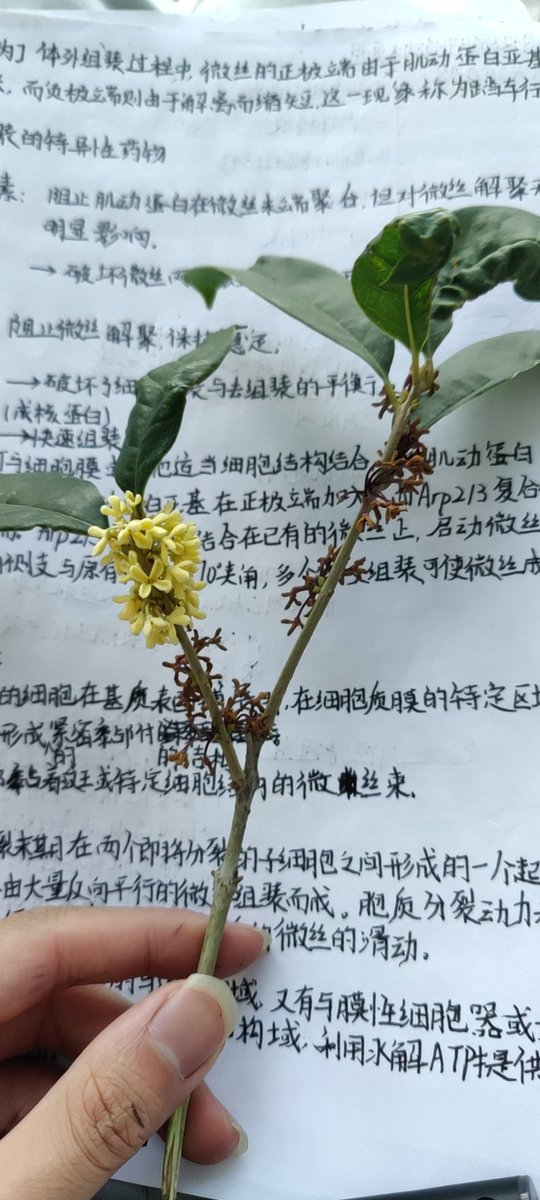 为] 体外组装过程中,微丝的正极端由于肌动蛋白亚基
而负极端则由于解离而缩短,这一现象称为踏车行
装的特异性药物
素: 阻止肌动蛋白在微丝末端聚合,但对微丝解聚
明显影响。
→ 破坏微丝
阻止微丝解聚,保持稳定。
→破坏了细 与去组装的平衡
(成核蛋白)
→快速组装
与细胞膜 他适当细胞结构结合 肌动蛋白
亚基在正极端加 Arp2/3复合
Arp2 结合在已有的微丝上,启动微丝
侧支与原有 70°夹角,多个 组装可使微丝成
的细胞在基质表 ,在细胞质膜的特定区域
形成紧密黏附
的 的结构
或特定细胞结 的微丝束.
裂末期在两个即将分裂的子细胞之间形成的一个起
由大量反向平行的微 组装而成。胞质分裂动力
微丝的滑动。
域,又有与膜性细胞器或
构域,利用水解ATP提供